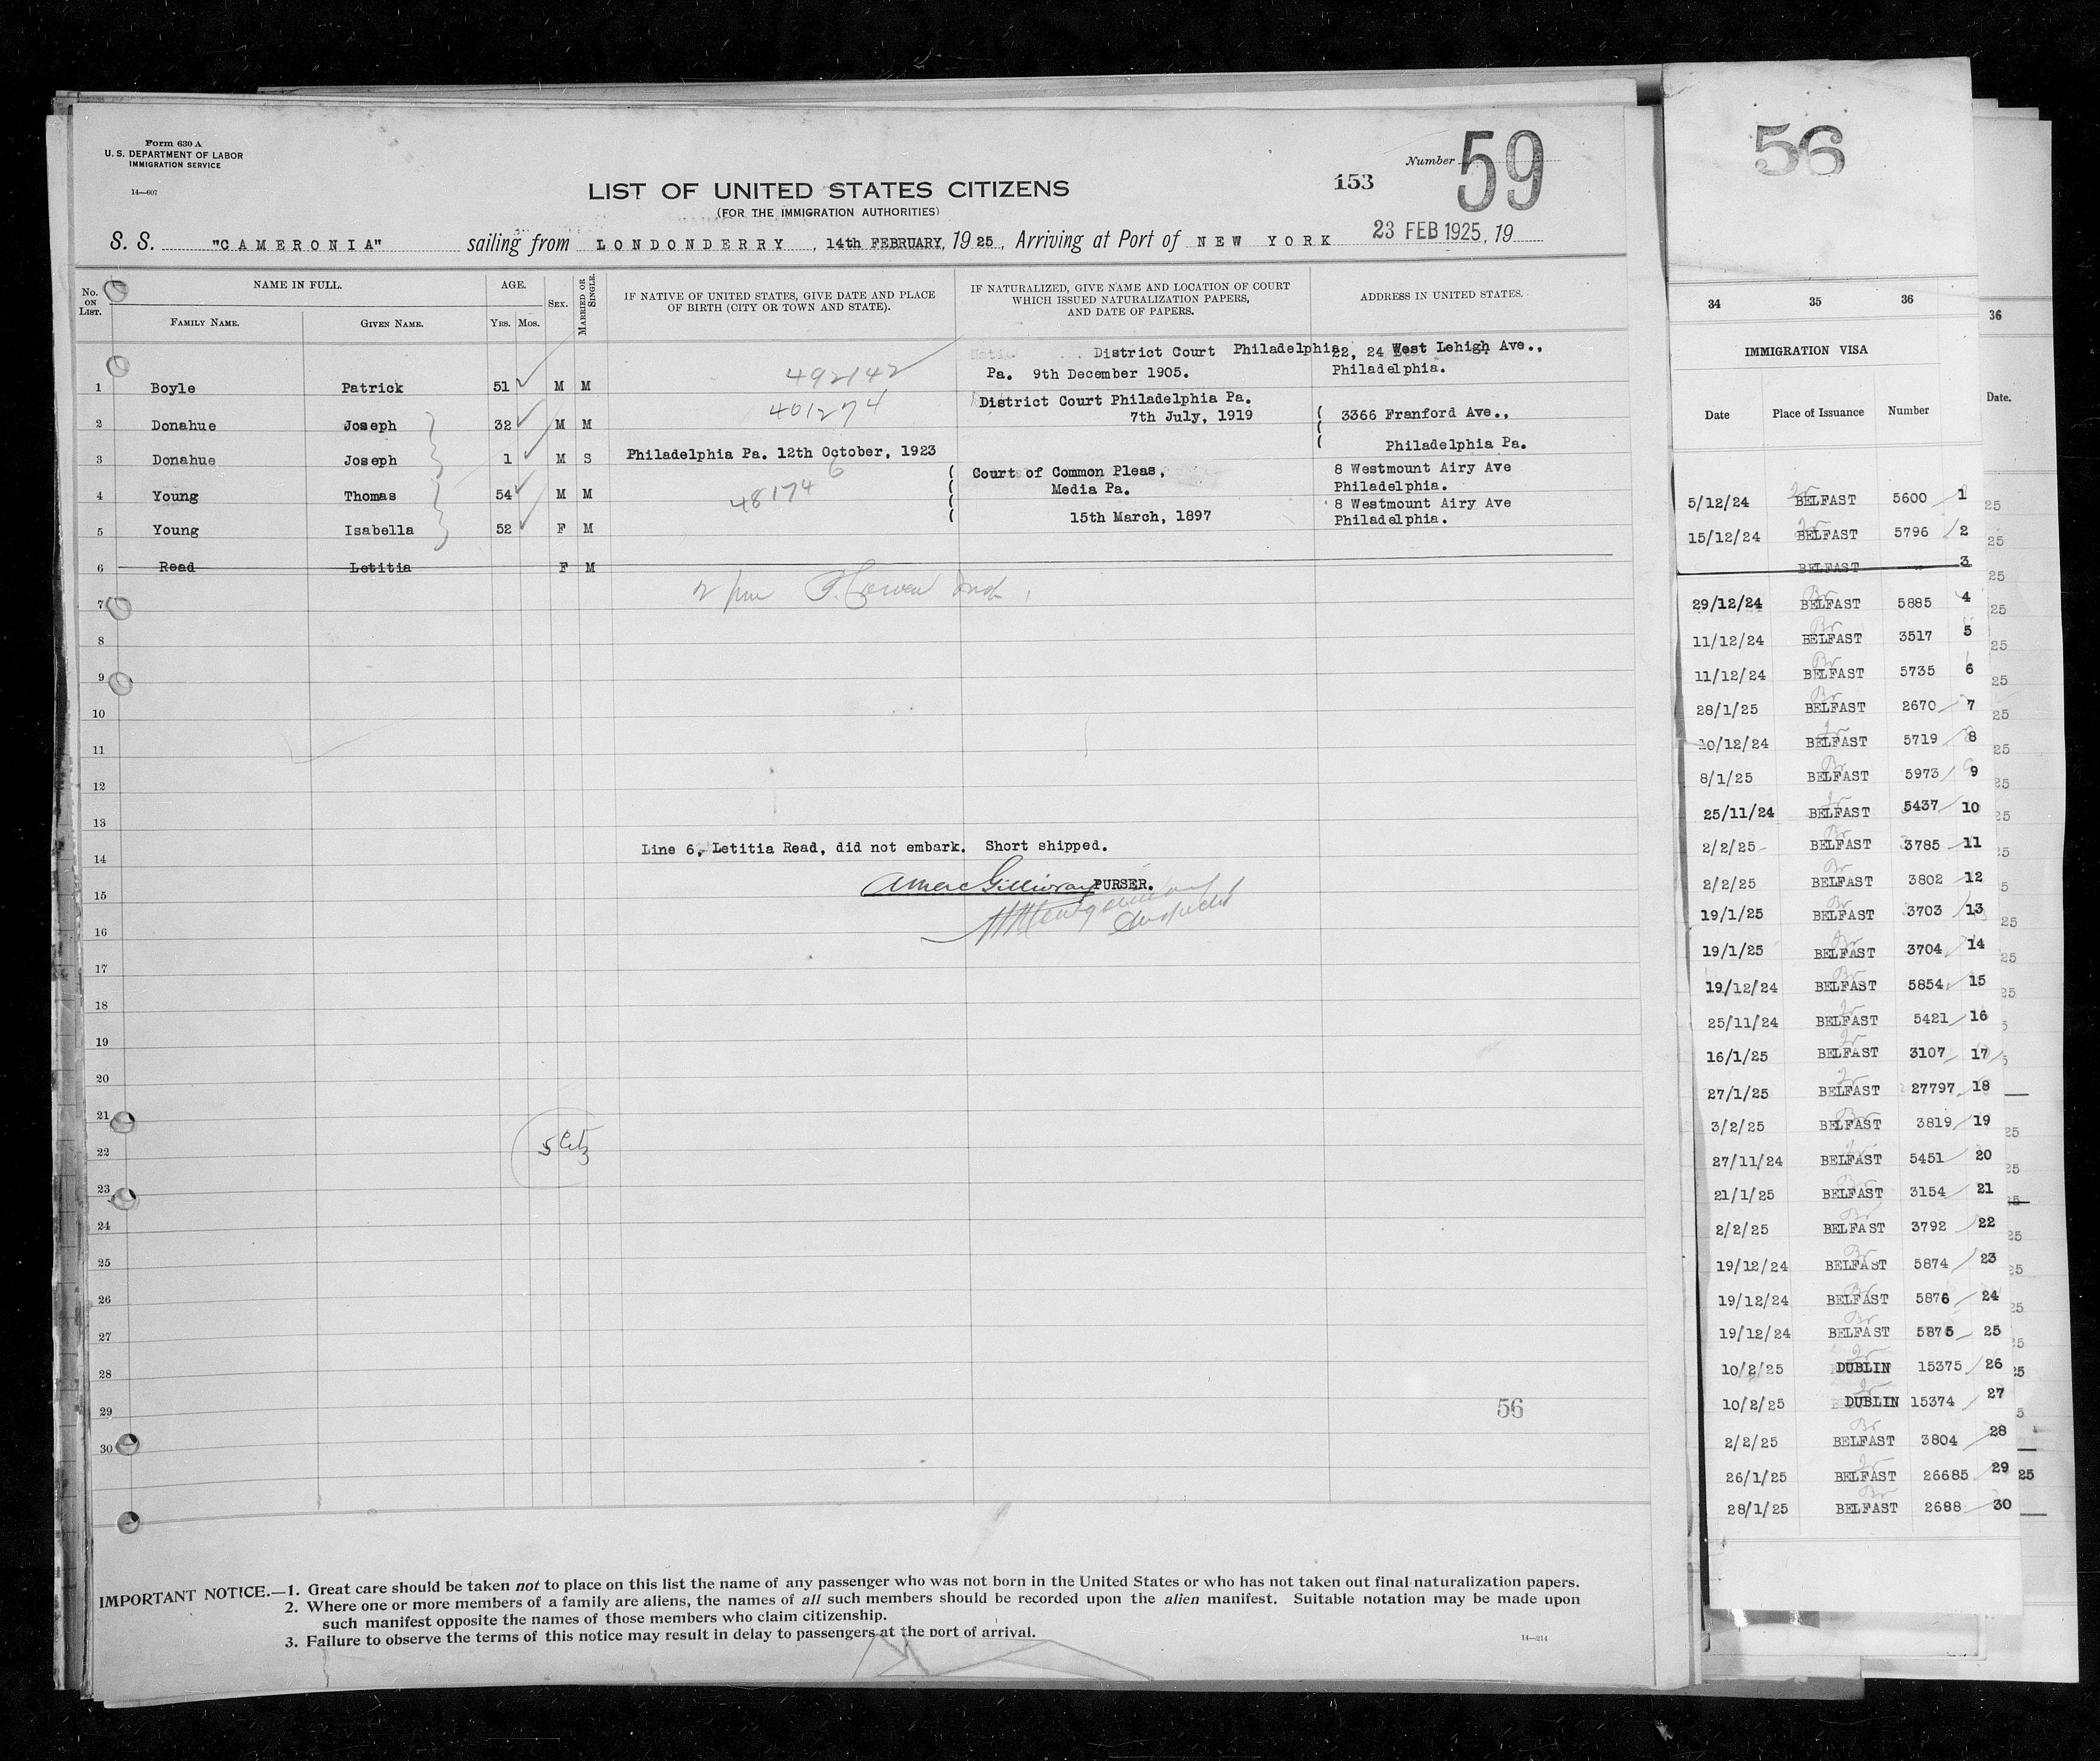 Form 630 A
U. S. DEPARTMENT OF LABOR
IMMIGRATION SERVICE
14—607
Number 59
153
LIST OF UNITED STATES CITIZENS
(FOR THE IMMIGRATION AUTHORITIES)
S. S. "CAMERONIA" sailing from LONDONDERRY, 14th FEBRUARY, 1925, Arriving at Port of NEW YORK 23 FEB 1925, 19
No. ON LIST. NAME IN FULL. AGE. SEX. MARRIED OR SINGLE. IF NATIVE OF UNITED STATES, GIVE DATE AND PLACE OF BIRTH (CITY OR TOWN AND STATE). IF NATURALIZED, GIVE NAME AND LOCATION OF COURT WHICH ISSUED NATURALIZATION PAPERS, AND DATE OF PAPERS. ADDRESS IN UNITED STATES.
FAMILY NAME. GIVEN NAME. YRS. MOS.
District Court Philadelphia 22, 24 West Lehigh Ave.,
Pa. 9th December 1905. Philadelphia.
1 Boyle Patrick 51 M M 492142
District Court Philadelphia Pa.
2 Donahue Joseph 32 M M 401274 7th July, 1919 3366 Franford Ave.,
Philadelphia Pa.
3 Donahue Joseph 1 M S Philadelphia Pa. 12th October, 1923
Court of Common Pleas, 8 Westmount Airy Ave
4 Young Thomas 54 M M 481746 Media Pa. Philadelphia.
8 Westmount Airy Ave
5 Young Isabella 52 F M 15th March, 1897 Philadelphia.
6 Read Letitia F M
7
8
9
10
11
12
13
Line 6, Letitia Read, did not embark. Short shipped.
14
PURSER.
15
16
17
18
19
20
21
22
23
24
25
26
27
28
29
30
56
IMPORTANT NOTICE.—1. Great care should be taken not to place on this list the name of any passenger who was not born in the United States or who has not taken out final naturalization papers.
2. Where one or more members of a family are aliens, the names of all such members should be recorded upon the alien manifest. Suitable notation may be made upon
such manifest opposite the names of those members who claim citizenship.
3. Failure to observe the terms of this notice may result in delay to passengers at the port of arrival.
14—214
56
34 35 36
IMMIGRATION VISA
Date Place of Issuance Number
5/12/24 BELFAST 5600 1
15/12/24 BELFAST 5796 2
BELFAST 3
29/12/24 BELFAST 5885 4
11/12/24 BELFAST 3517 5
11/12/24 BELFAST 5735 6
28/1/25 BELFAST 2670 7
10/12/24 BELFAST 5719 8
8/1/25 BELFAST 5973 9
25/11/24 BELFAST 5437 10
2/2/25 BELFAST 3785 11
2/2/25 BELFAST 3802 12
19/1/25 BELFAST 3703 13
19/1/25 BELFAST 3704 14
19/12/24 BELFAST 5854 15
25/11/24 BELFAST 5421 16
16/1/25 BELFAST 3107 17
27/1/25 BELFAST 27797 18
3/2/25 BELFAST 3819 19
27/11/24 BELFAST 5451 20
21/1/25 BELFAST 3154 21
2/2/25 BELFAST 3792 22
19/12/24 BELFAST 5874 23
19/12/24 BELFAST 5876 24
19/12/24 BELFAST 5875 25
10/2/25 DUBLIN 15375 26
10/2/25 DUBLIN 15374 27
2/2/25 BELFAST 3804 28
26/1/25 BELFAST 26685 29
28/1/25 BELFAST 2688 30
36
Date.